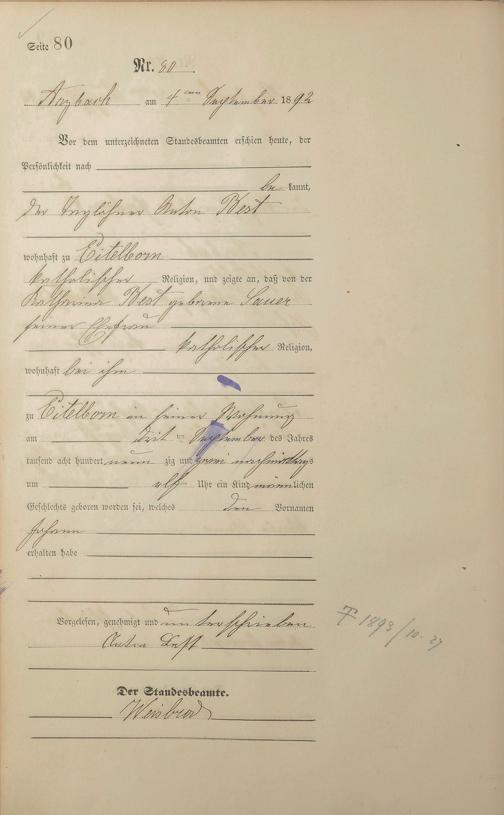 Seite 80
Nr. 80
Arzbach am 4ten September 1892
Vor dem unterzeichneten Standesbeamten erschien heute, der
Persönlichkeit nach
be kannt,
der Taglöhner Anton Best
wohnhaft zu Eitelborn
katholischer Religion, und zeigte an, daß von der
Katharina Best geborene Sauer
seiner Ehefrau
katholischer Religion,
wohnhaft bei ihm
zu Eitelborn in seiner Wohnung
am dritten September des Jahres
tausend acht hundert neun zig und zwei nachmittags
um elf Uhr ein Kind männlichen
Geschlechts geboren worden sei, welches den Vornamen
Johann
erhalten habe
Vorgelesen, genehmigt und unterschrieben
Anton Best
† 1893/10. 27
Der Standesbeamte.
Weisbrod